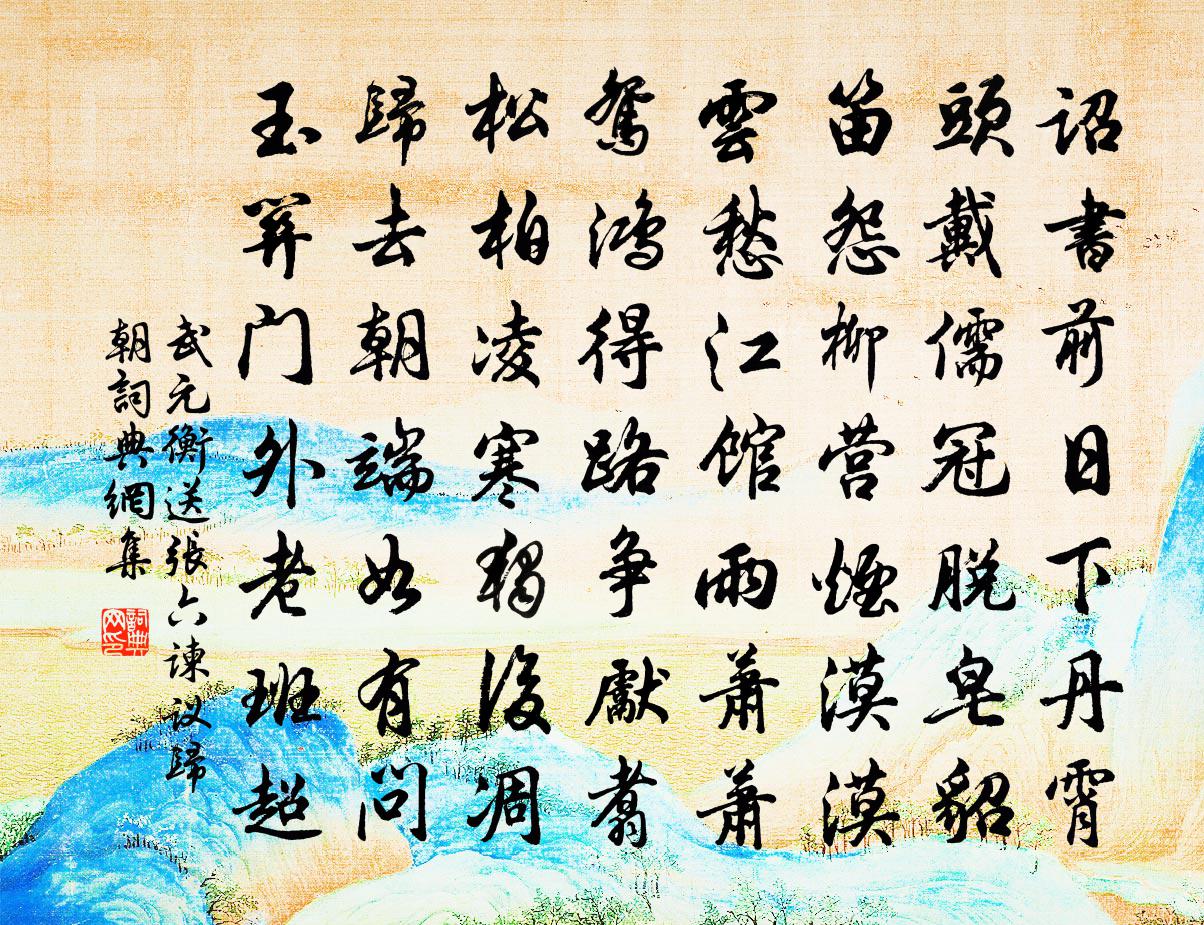 詔書前日下丹霄
頭戴儒冠脫皂貂
笛怨柳營煙漠漠
雲愁江館雨蕭蕭
鴛鴻得路爭獻翥
松柏凌寒獨後凋
歸去朝端如有問
玉關門外老班超
武元衡送張六諫議歸
朝詞典網集
詞典网印